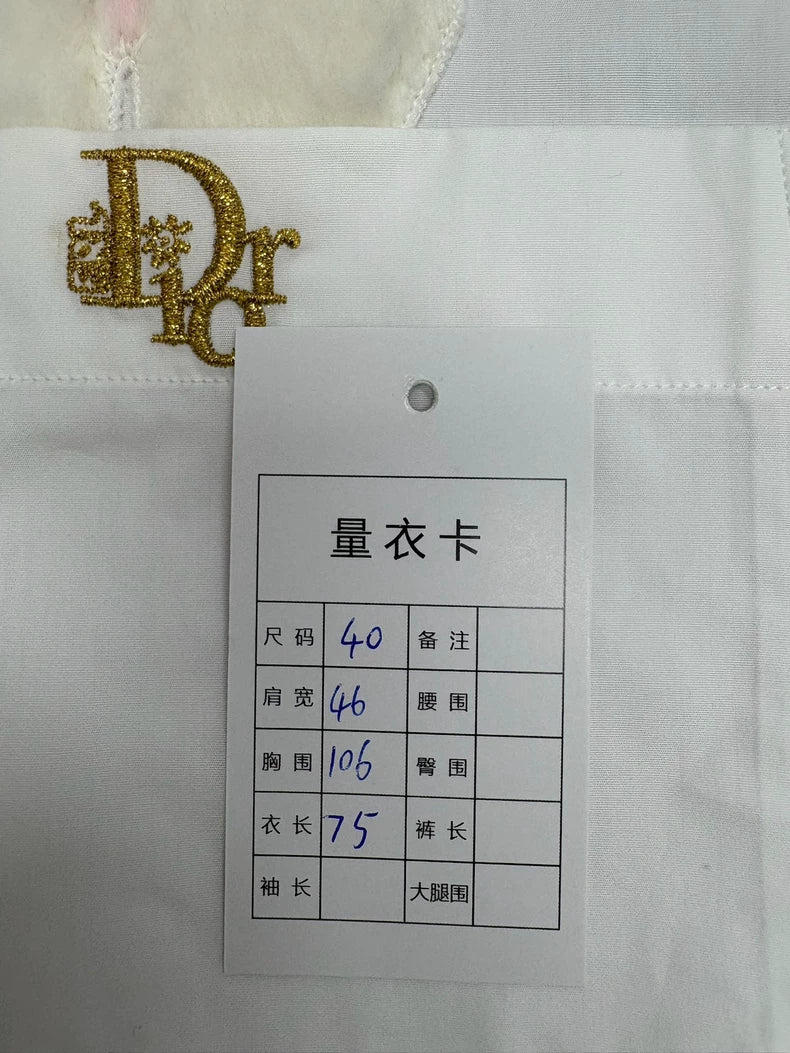 Dior
量衣卡
尺码 40 备注
肩宽 46 腰围
胸围 106 臀围
衣长 75 裤长
袖长 大腿围